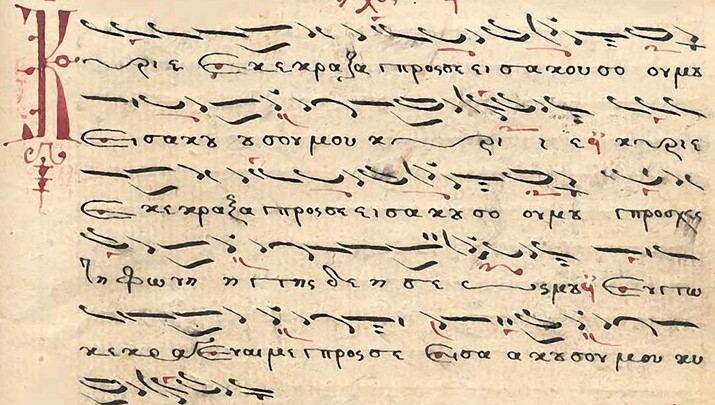 Κύριε Εκεκραξα προςσε εισακουσο ουμȣ
Εισακȣ ȣσουμου κ υρι ι ε κυριε
Εκεκραξα προςσε εισακȣσο ουμȣ προσχες
τη φωνη η της δε η σε ωςμȣ Εν τω
κεκρα Εναιμε προςσε Εισα ακȣσουμου κυ